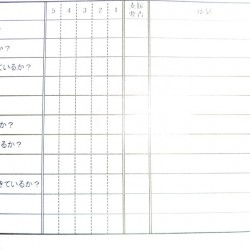 5 4 3 2 1 支援要否 所見
か？
ているか？
か？
るか？
きているか？